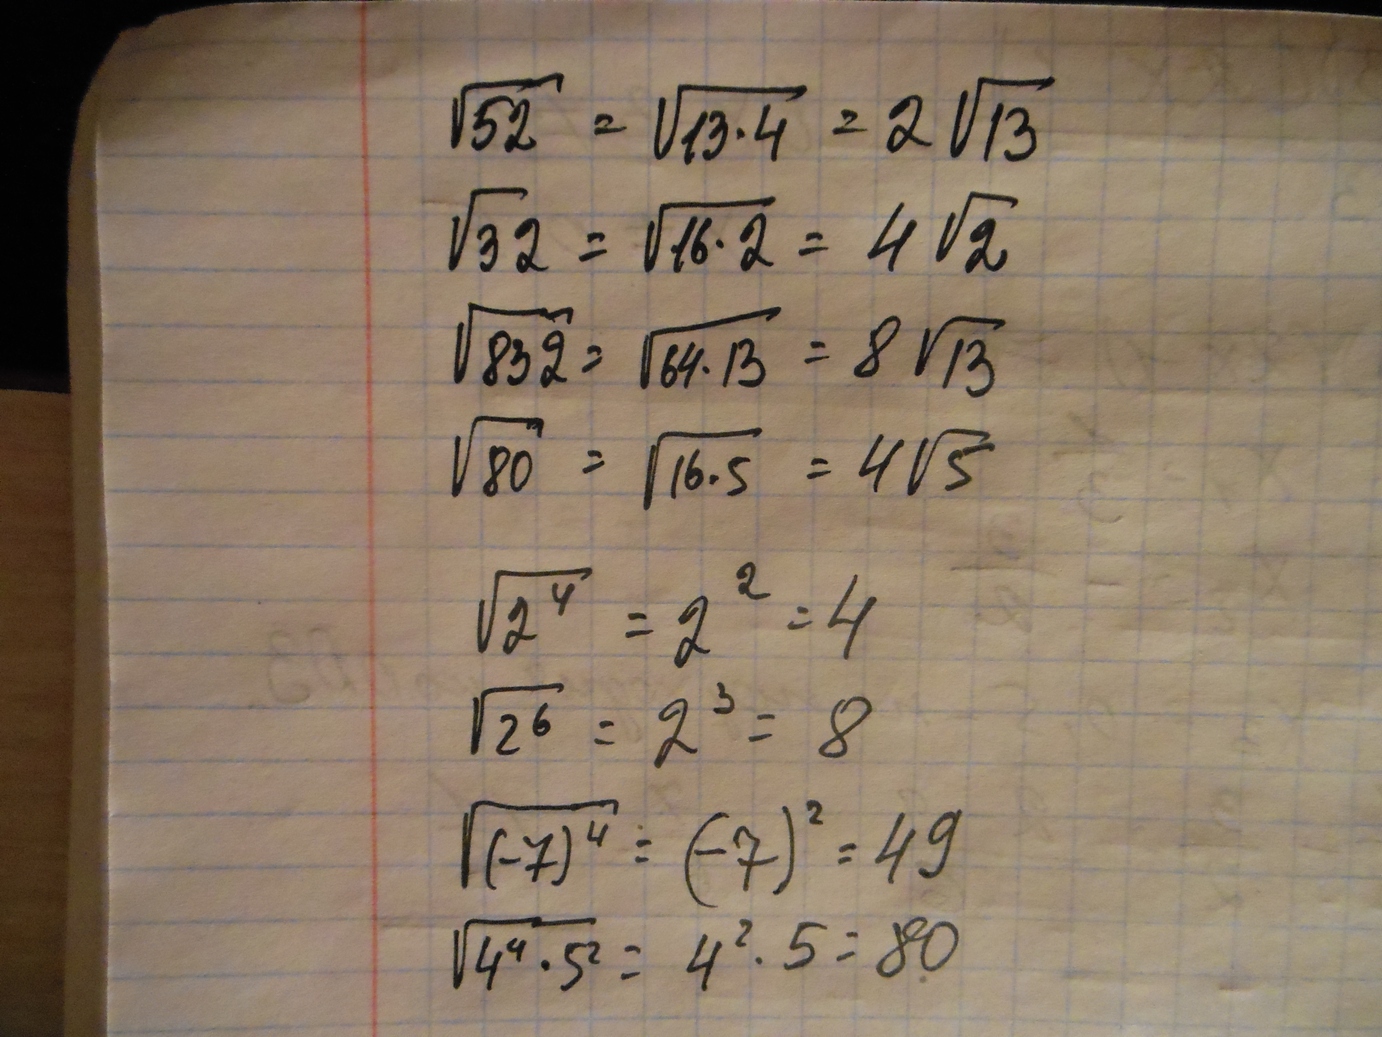 √52 = √13·4 = 2√13
√32 = √16·2 = 4√2
√832 = √64·13 = 8√13
√80 = √16·5 = 4√5
√2⁴ = 2² = 4
√2⁶ = 2³ = 8
√(-7)⁴ = (-7)² = 49
√4⁴·5² = 4²·5 = 80